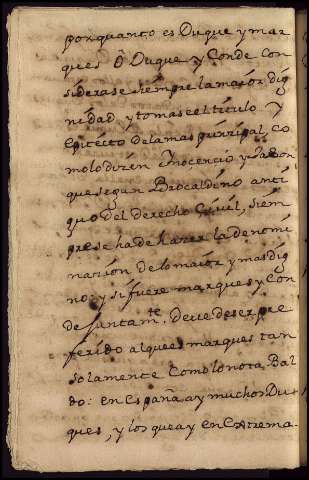 porquanto es Duque y mar
ques ô Duque y Conde con
siderase siempre la maior dig
nidad y tomase el titulo y
epitecto de la mas prinripal, co
molo dizen Inocencio y Jason
que segun Brocaldeno anti
guo del derecho Civil, siem
pre se ha de hazer la denomi
nasion de lo maior y mas dig
no: y si fuere marques y Con
de juntamte. deve de ser pre
ferido al que es marques tan
solamente Como lo nota Bal
do: en España ay muchos Du
ques, y los que ay en Extrema-